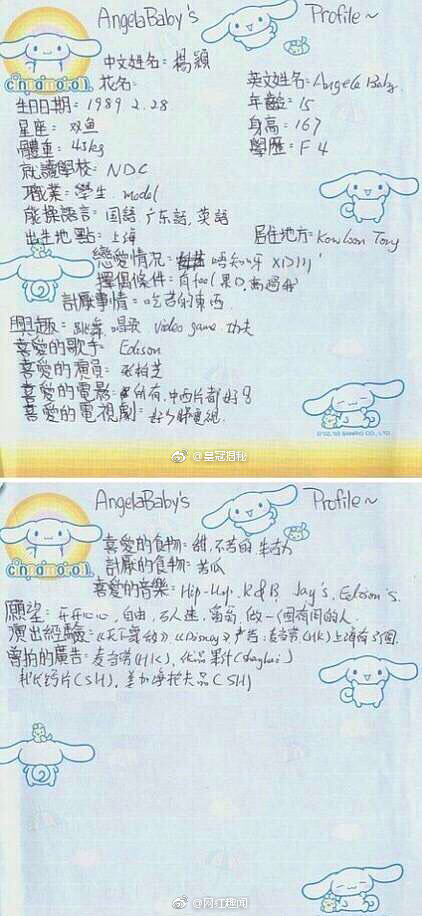 AngelaBaby's Profile~
cinnamoroll
中文姓名：楊穎
花名：
英文姓名：Angela Baby.
生日日期：1989.2.28
年齡：15
星座：双鱼
身高：167
體重：45kg
學歷：F4
就讀學校：NDC
職業：學生. model
能操語言：国語, 广东話, 英語
出生地點：上海
居住地方：Kowloon Tong
戀愛情况：唔知呀 XD)))
擇偶條件：有feel 果D, 高過我
討厭事情：吃苦的東西
興趣：跳舞, 唱歌 video game. 功夫
喜爱的歌手：Edison
喜爱的演員：张柏芝
喜爱的電影：所有, 中西片都好
喜爱的電視劇：
©'02,'03 SANRIO CO., LTD.
@皇冠週秘
AngelaBaby's Profile~
cinnamoroll
喜爱的食物：甜, 不苦的
討厭的食物：苦瓜
喜爱的音樂：Hip-Hop, R&B, Jay's, Edison's.
願望：开开心心, 自由, 万人迷, 富的, 做一個有用的人.
演出經驗：《Disney》广告；麦当劳(HK)上海有3個.
曾拍的廣告：麦当劳(HK), 果汁(Shanghai)
(SH), (SH)
@网红趣闻